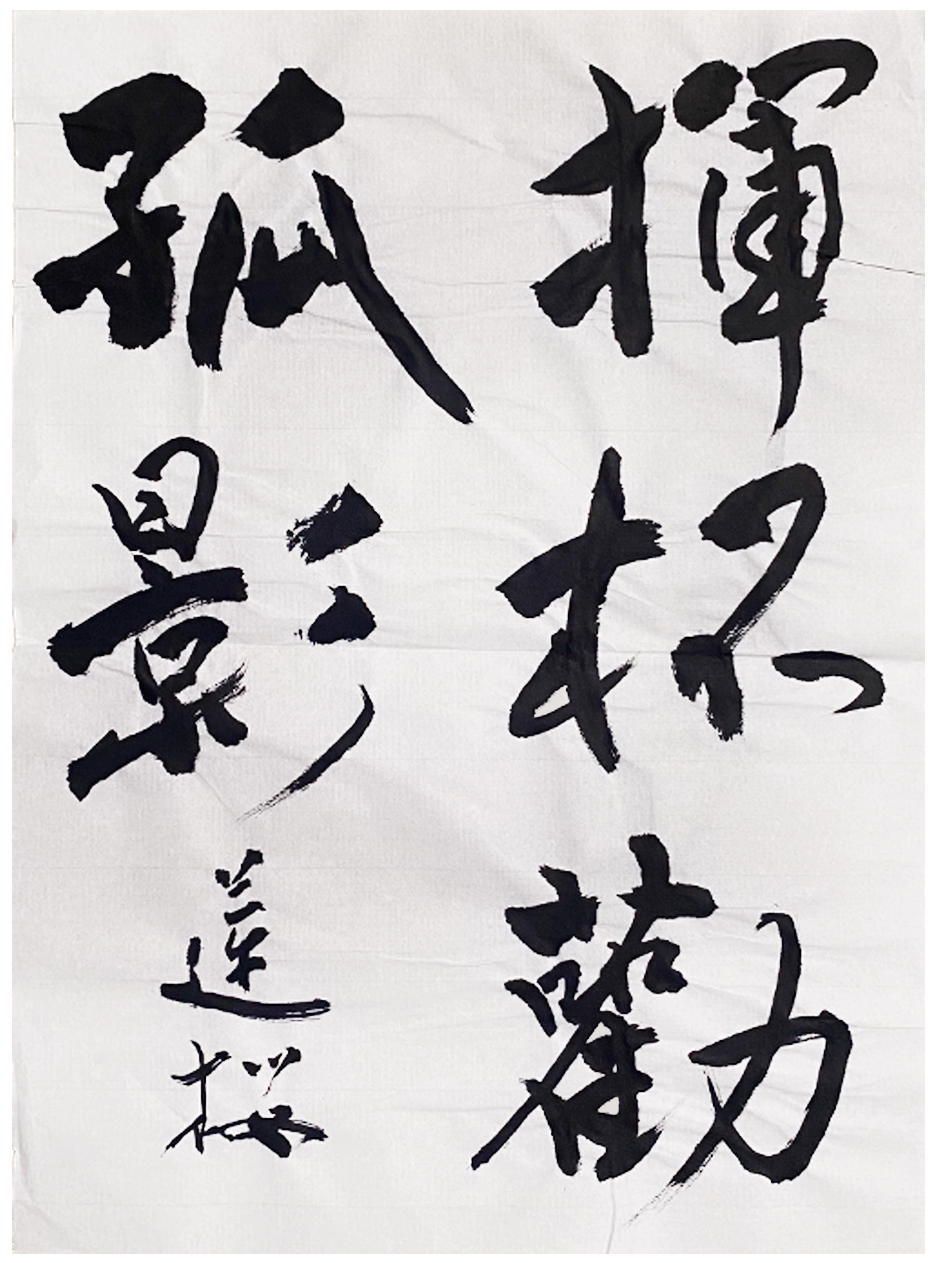 揮杯勸
孤影
蓮桜